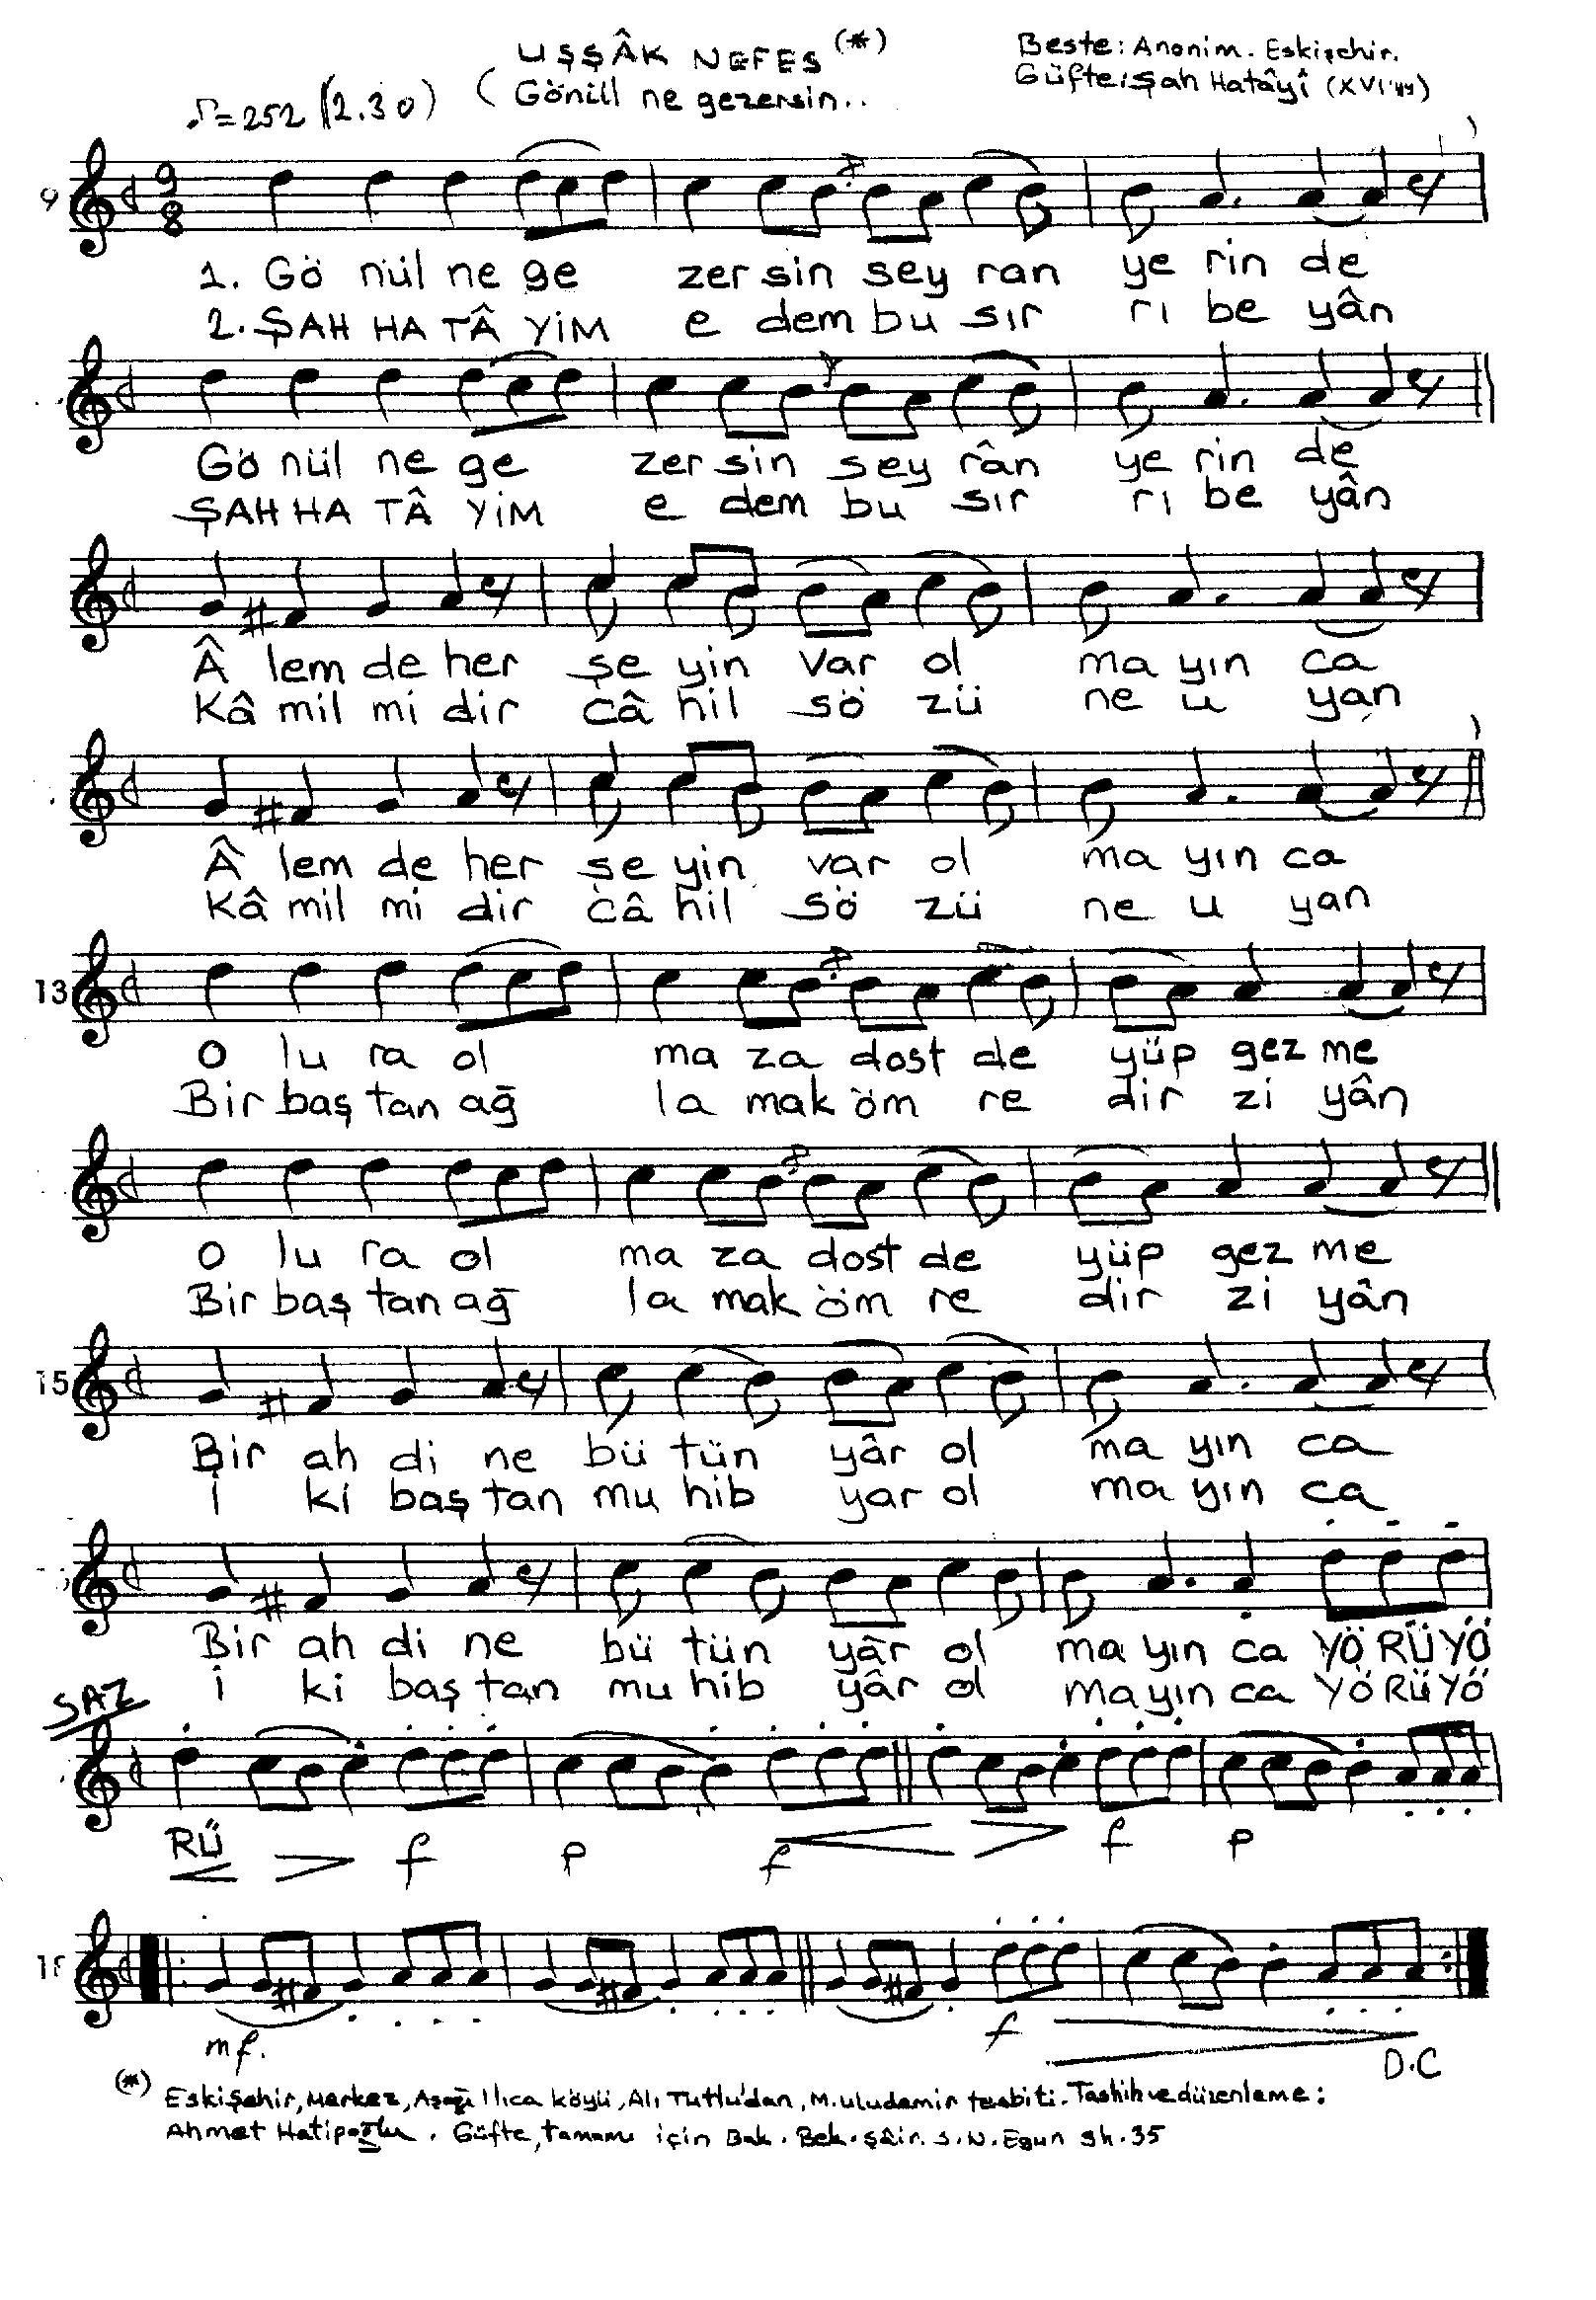 UŞŞÂK NEFES (*)
Beste: Anonim. Eskişehir.
(Gönül ne gezersin..
Güfte: Şah Hatâyî (XVI'yy)
♪=252 (2.30)
9
9
8
1. Gö nül ne ge zer sin sey ran ye rin de
2. ŞAH HA TÂ YİM e dem bu sır rı be yân
Gö nül ne ge zer sin sey rân ye rin de
ŞAH HA TÂ YİM e dem bu sır rı be yân
Â lem de her şe yin var ol ma yın ca
Kâ mil mi dir câ hil sö zü ne u yan
Â lem de her şe yin var ol ma yın ca
Kâ mil mi dir câ hil sö zü ne u yan
13
O lu ra ol ma za dost de yüp gez me
Bir baş tan ağ la mak öm re dir zi yân
O lu ra ol ma za dost de yüp gez me
Bir baş tan ağ la mak öm re dir zi yân
15
Bir ah di ne bü tün yâr ol ma yın ca
İ ki baş tan mu hib yar ol ma yın ca
Bir ah di ne bü tün yâr ol ma yın ca YÖ RÜ YÖ
İ ki baş tan mu hib yâr ol ma yın ca YÖ RÜ YÖ
SAZ
RÜ f p f f p
mf. f
D.C
(*) Eskişehir, Merkez, Aşağı Ilıca köyü, Ali Tutlu'dan, M. Uludemir tesbiti. Tashih ve düzenleme:
Ahmet Hatipoğlu. Güfte, tamamı için Bak. Bek. şâir. S. N. Ergun sh. 35